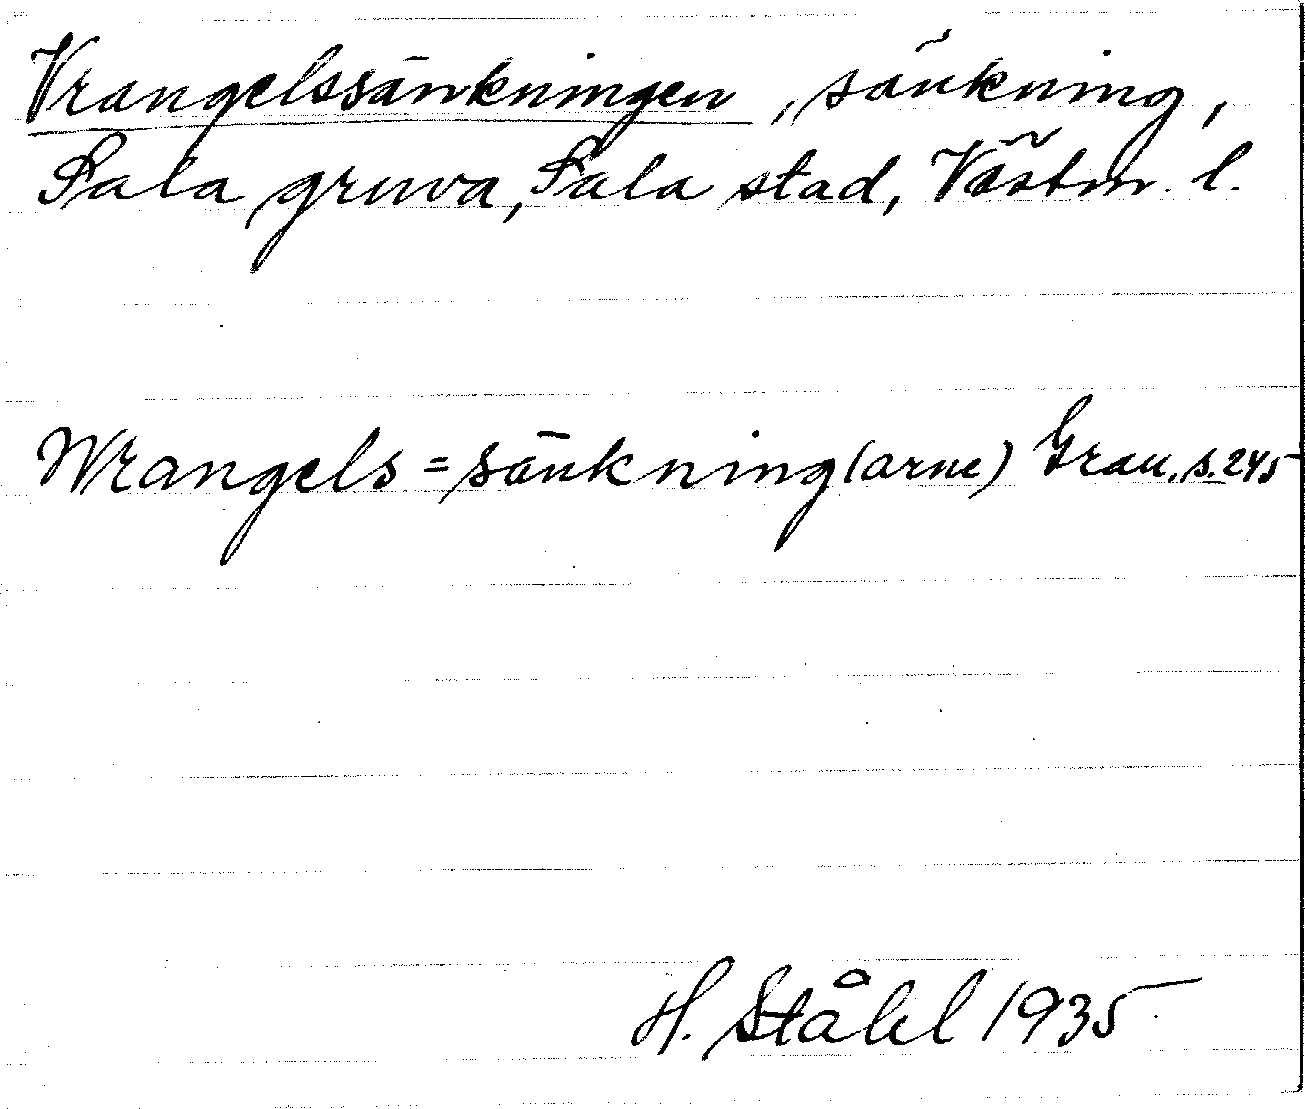 Vrangelssänkningen, sänkning,
Sala gruva, Sala stad, Västm. l.
Wrangels=sänkning(arne) Grau, s. 245
H. Ståhl 1935